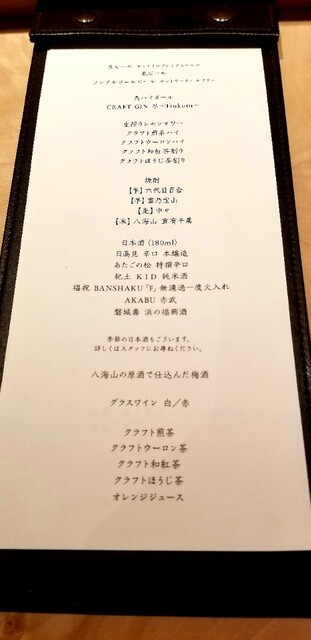 生ビール サントリープレミアムモルツ
瓶ビール
ノンアルコールビール サントリーオールフリー
角ハイボール
CRAFT GIN 尽〜Tsukuru〜
生搾りレモンサワー
クラフト煎茶ハイ
クラフトウーロンハイ
クラフト和紅茶割り
クラフトほうじ茶割り
焼酎
【芋】六代目百合
【芋】富乃宝山
【麦】中々
【米】八海山 宜有千萬
日本酒 (180ml)
日高見 辛口 本醸造
あたごの松 特撰辛口
紀土 KID 純米酒
福祝 BANSHAKU「F」無濾過一度火入れ
AKABU 赤武
磐城壽 浜の福興酒
季節の日本酒もございます。
詳しくはスタッフにお尋ねください。
八海山の原酒で仕込んだ梅酒
グラスワイン 白／赤
クラフト煎茶
クラフトウーロン茶
クラフト和紅茶
クラフトほうじ茶
オレンジジュース